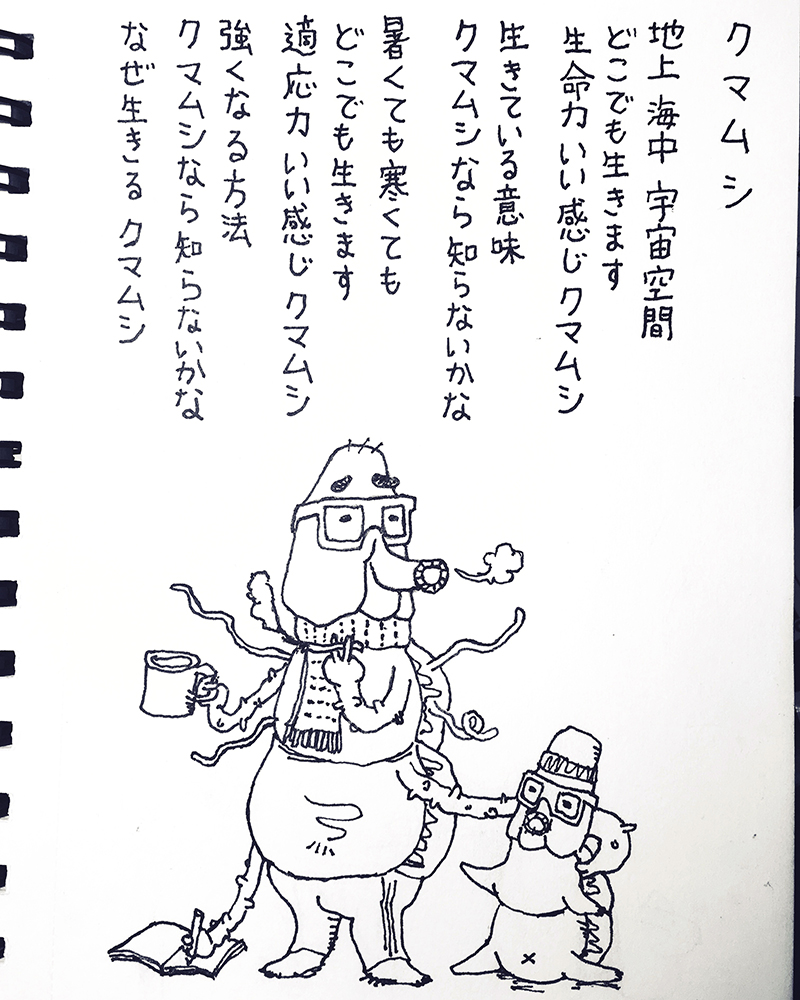 クマムシ
地上 海中 宇宙空間
どこでも生きます
生命力 いい感じ クマムシ
生きている意味
クマムシなら 知らないかな
暑くても寒くても
どこでも生きます
適応力 いい感じ クマムシ
強くなる方法
クマムシなら 知らないかな
なぜ生きる クマムシ